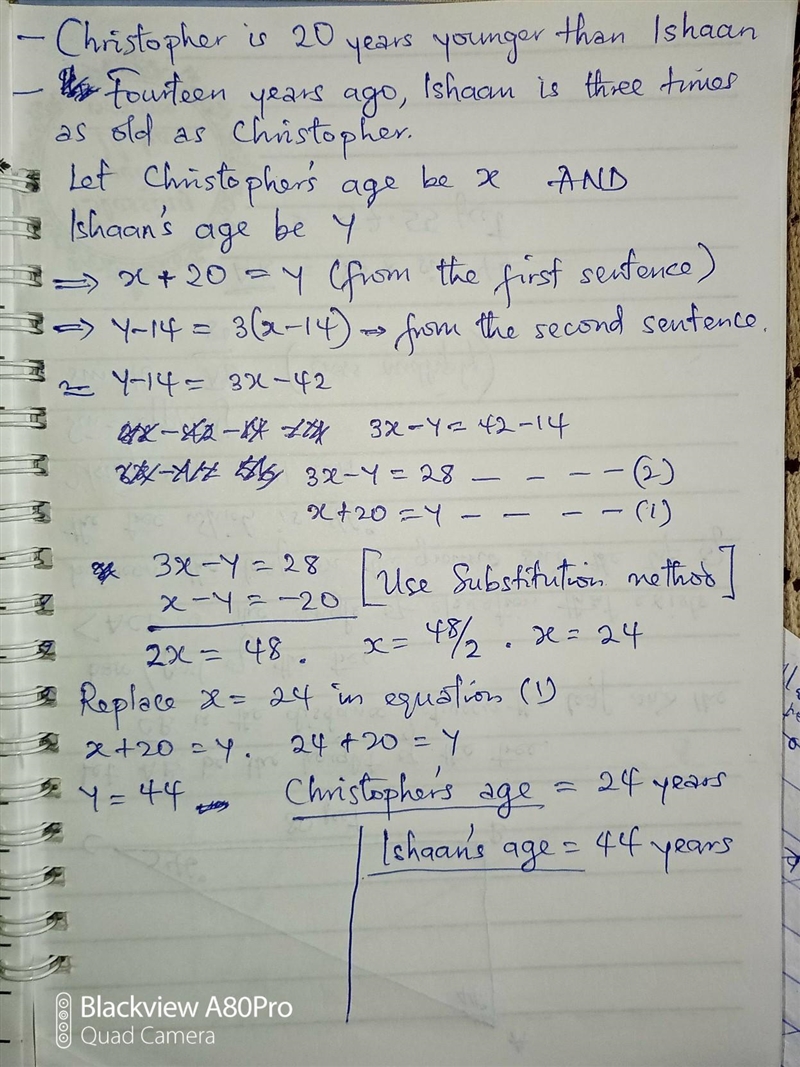 - Christopher is 20 years younger than Ishaan
- Fourteen years ago, Ishaan is three times
as old as Christopher.
Let Christopher's age be x AND
Ishaan's age be Y
⇒ x + 20 = Y (from the first sentence)
⇒ Y-14 = 3(x-14) → from the second sentence.
= Y-14 = 3x-42
3x-Y = 42-14
3x-Y = 28 - - - - (2)
x+20 = Y - - - - (1)
3x-Y = 28 [Use Substitution method]
x-Y = -20
2x = 48. x = 48/2. x = 24
Replace x = 24 in equation (1)
x+20 = Y. 24+20 = Y
Y = 44 Christopher's age = 24 years
Ishaan's age = 44 years
Blackview A80Pro
Quad Camera